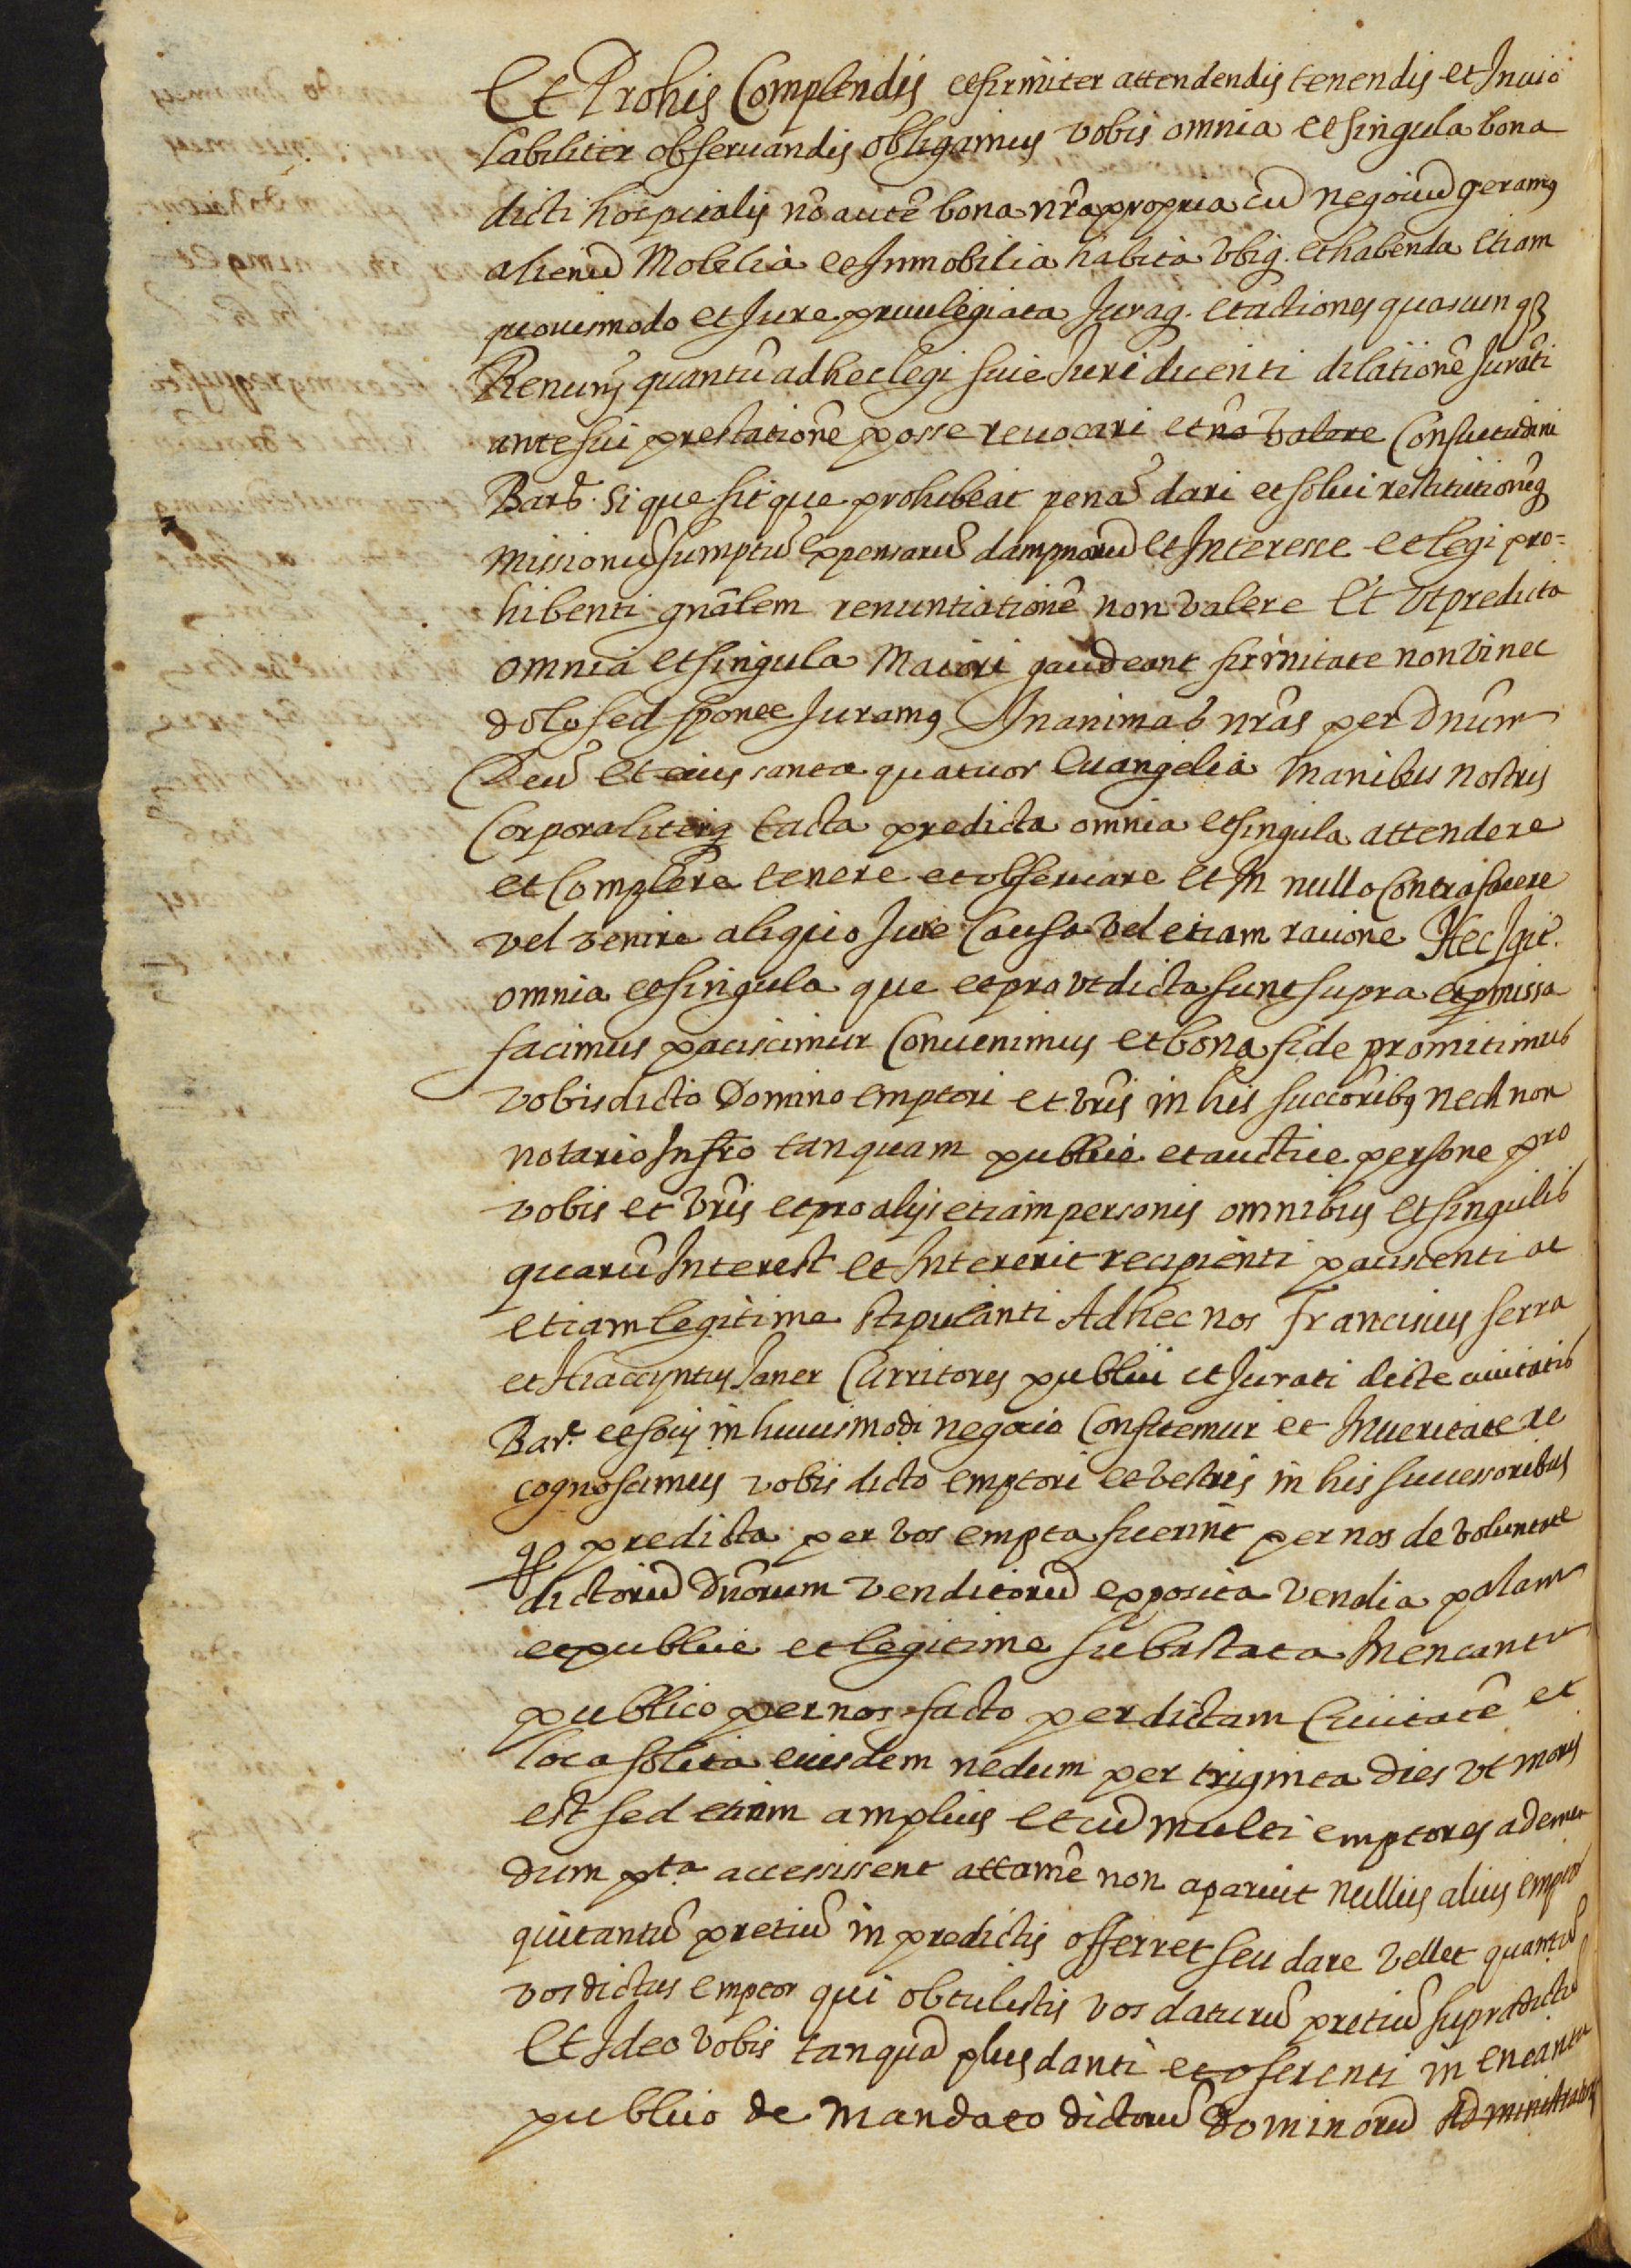 Et Pro his Complendis et firmiter attendendis tenendis et Inuio
labiliter obseruandis obligamus vobis omnia et singula bona
dicti hospitalis nō autē bona nr̄a propria cū negotiū geramus
alienū Mobilia et Inmobilia habita vbiq. et habenda etiam
quouismodo et Jure priuilegiata Juraq. et actiones quascunq3
Renuns̄ quantū ad hec legi siue Juri dicenti dilationē Jurati
ante sui prestationē posse reuocari et nō valere Consuetudini
Barc̄. si que sit que prohibeat penā dari et solui restitutionēq
missionū sumptuū expensarū dampnorū et Interesse et legi pro=
hibenti gnālem renuntiationē non valere Et vt predicta
omnia et singula Maiori gaudeant firmitate non vi nec
dolo sed sponte Juramus In animas nr̄as per Dnūm
Deū et eius santa quatuor Euangelia Manibus nostris
Corporaliterq tacta predicta omnia et singula attendere
et Complere tenere et obseruare et In nullo Contrafacere
vel venire aliquo Jure Causa vel etiam ratione Hec Igit.
omnia et singula que et prout dicta sunt supra et pmissa
facimus paciscimur Conuenimus et bona fide promitimus
vobis dicto Domino emptori et vr̄is in his succōribus nech non
notario Infr̄o tanquam publice et auctīce persone pro
vobis et vr̄is et pro alijs etiam personis omnibus et singulis
quarū Interest et Intererit recipienti paciscenti ac
etiam legitime stipulanti Ad hec nos Franciscus serra
et Hiaccyntus Janer Curritores publici et Jurati dicte ciuitatis
Barc̄. et socij in huiusmodi negotio Confitemur et In veritate re
cognoscimus vobis dicto emptori et vestris in his successoribus
qđ predicta per vos empta fuerint per nos de voluntate
dictorū Dnōrum venditorū exposita vendia palam
et publice et legitime subastata In encantu
publico per nos facto per dictam Ciuitatē et
loca solita eiusdem nedum per triginta dies vt moris
est sed etiam amplius et cū multi emptores ad emen
dum pta accessissent attamē non aparuit nullus alius emptor
qui tantū pretiū in predictis offerret seu dare vellet quantū
vos dictus emptor qui obtulistis vos daturū pretiū supradictū
Et Ideo vobis tanquā plus danti et oferenti in encantu
publico de Mandato dictorū Dominorū Administratorū